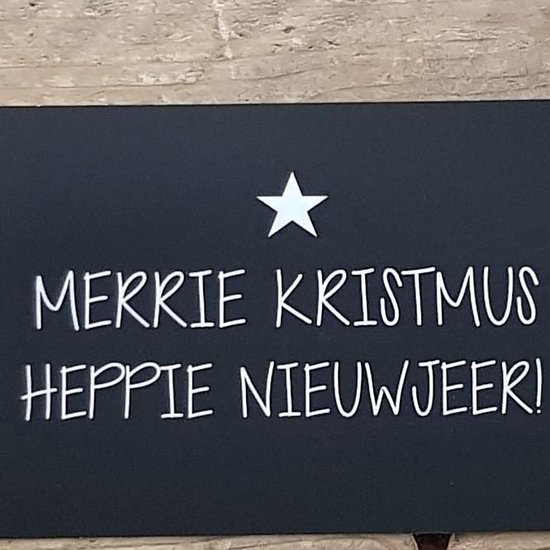 MERRIE KRISTMUS
HEPPIE NIEUWJEER!